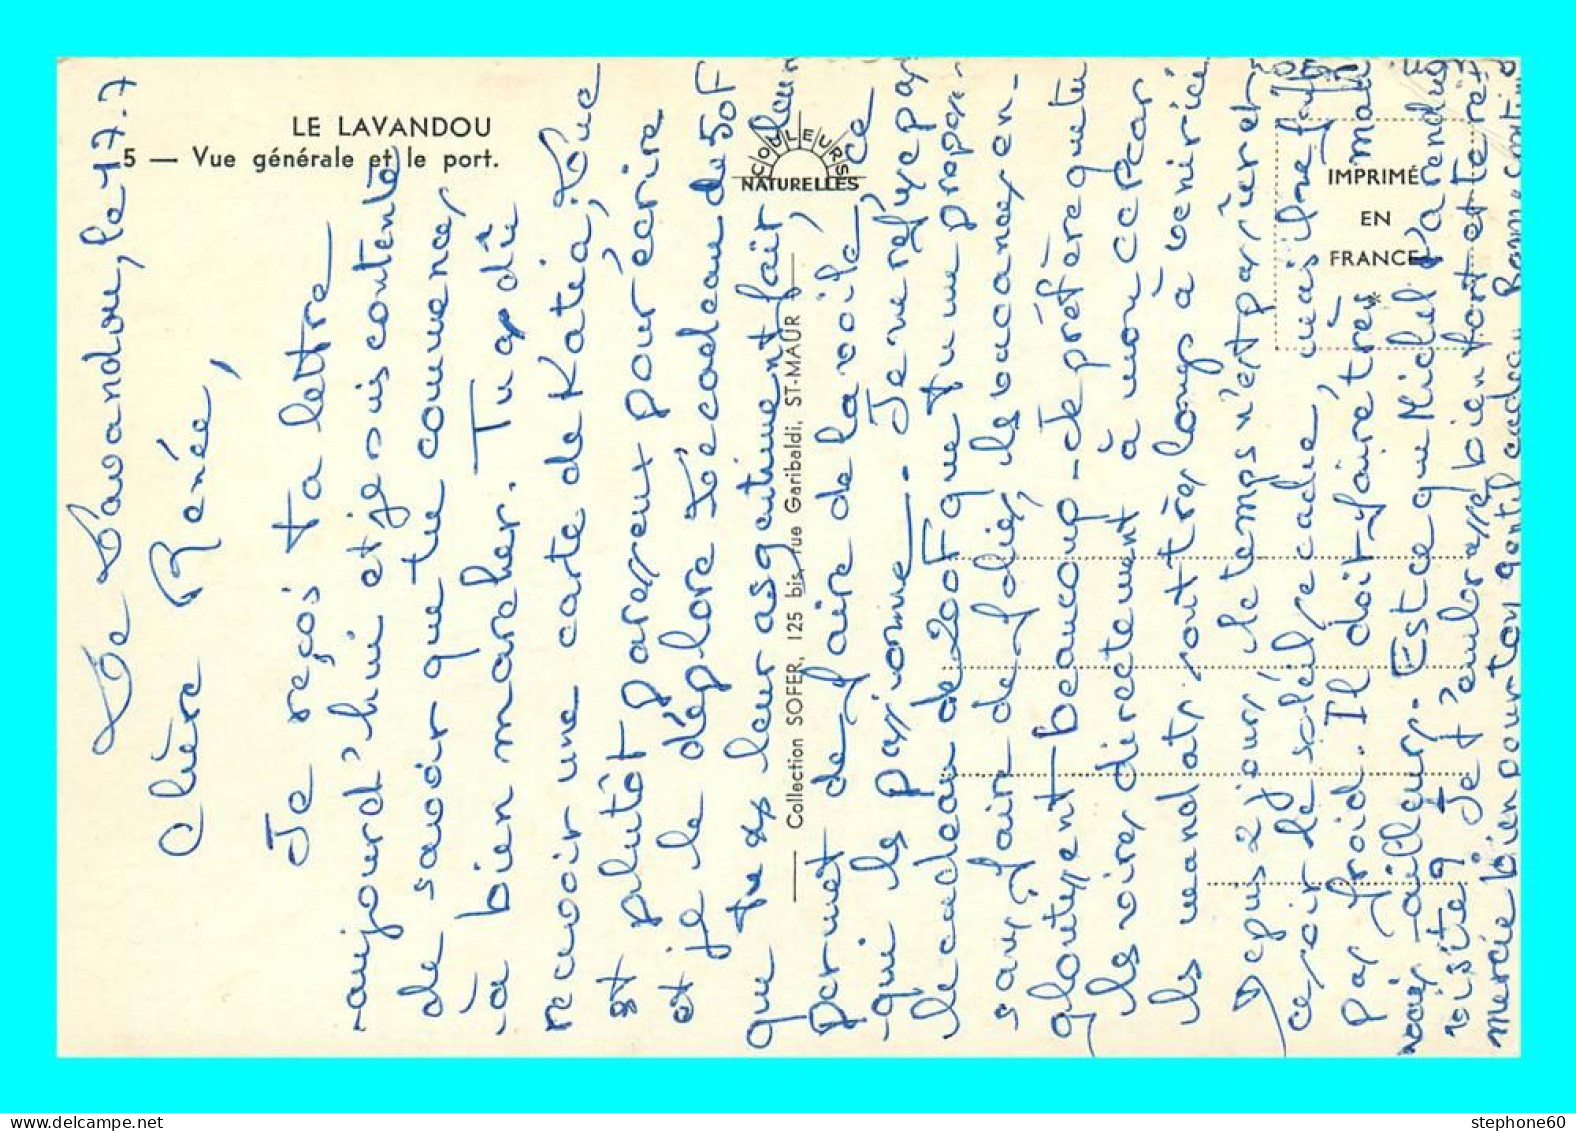 LE LAVANDOU
5 — Vue générale et le port.
COULEURS
NATURELLES
IMPRIMÉ
EN
FRANCE
*
Collection SOFER, 125 bis, rue Garibaldi, ST-MAUR
Le Lavandou, le 17.7
Chère Renée,
Je reçois ta lettre
aujourd'hui et je suis contente
de savoir que tu commences
à bien marcher. Tu as dû
recevoir une carte de Katia, Luc
est plutôt paresseux pour écrire
et je le déplore. Le cadeau de 50F
que tu as leur as gentiment fait, leur
permet de faire de la voile, ce
qui les passionne. Je ne refuse pas
le cadeau de 200F que tu me propo-
sais, faire des folies, les vacances en-
gloutissent beaucoup. Je préfère que tu
les vires directement à mon CCP car
les mandats sont très longs à venir ici
Depuis 2 jours, le temps n'est pas, et
le soleil se cache, mais il ne fait
pas froid. Il doit faire très mal
ailleurs. Est ce que Michel t'a rendu
visite ? Je t'embrasse bien fort et te re-
mercie bien pour ton gentil cadeau
stephone60